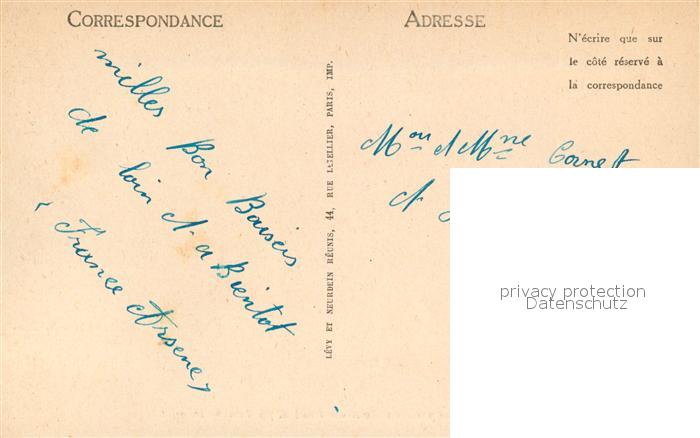 CORRESPONDANCE
milles Bon Baiseis
de loin et a Bientot
France Arsene
LÉVY ET NEURDEIN RÉUNIS, 44, RUE LETELLIER, PARIS, IMP.
ADRESSE
N'écrire que sur
le côté réservé à
la correspondance
Mon et Mme Cornet
et
privacy protection
Datenschutz